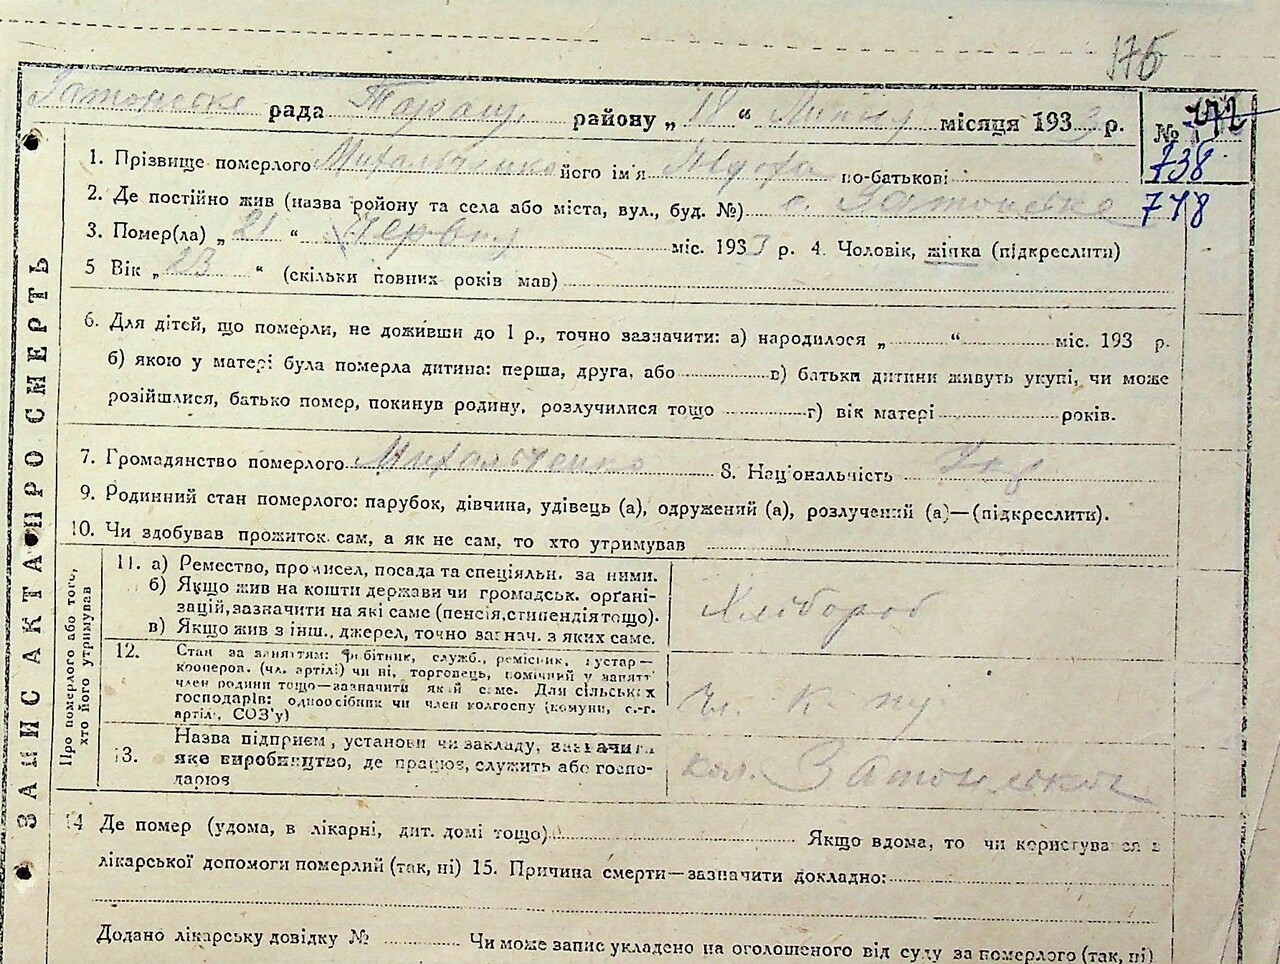 176
рада Таращ. району „ 18 “ Липня місяця 1933 р. №
738
1. Прізвище померлого Михальченко його ім'я по-батькові
2. Де постійно жив (назва району та села або міста, вул., буд. №) с. 778
3. Помер(ла) „ 21 “ Червня міс. 1933 р. 4. Чоловік, жінка (підкреслити)
5 Вік „ 23 “ (скільки повних років мав)
6. Для дітей, що померли, не доживши до 1 р., точно зазначити: а) народилося „ “ міс. 193 р.
б) якою у матері була померла дитина: перша, друга, або в) батьки дитини живуть укупі, чи може
розійшлися, батько помер, покинув родину, розлучилися тощо г) вік матері років.
7. Громадянство померлого Михальченко 8. Національність Укр
9. Родинний стан померлого: парубок, дівчина, удівець (а), одружений (а), розлучений (а)—(підкреслити).
10. Чи здобував прожиток сам, а як не сам, то хто утримував
ЗАПИС АКТА ПРО СМЕРТЬ
Про померлого або того, хто його утримував
11. а) Ремество, промисел, посада та спеціяльн. за ними.
б) Якщо жив на кошти держави чи громадськ. орґані-
зацій, зазначити на які саме (пенсія, стипендія тощо).
в) Якщо жив з інш. джерел, точно зазнач. з яких саме.
Хлібороб
12. Стан за заняттям: робітник, служб., ремісник, кустар—
кооперов. (чл. артілі) чи ні, торговець, помічний у занятті
член родини тощо—зазначити який саме. Для сільських
господарів: одноосібник чи член колгоспу (комуни, с.-г.
артіл., СОЗ'у)
Чл. к.
13. Назва підприєм., установи чи закладу, зазначити
яке виробництво, де працює, служить або госпо-
дарює
кол.
14 Де помер (удома, в лікарні, дит. домі тощо) Якщо вдома, то чи користувався з
лікарської допомоги померлий (так, ні) 15. Причина смерти—зазначити докладно:
Додано лікарську довідку № Чи може запис укладено на оголошеного від суду за померлого (так, ні)